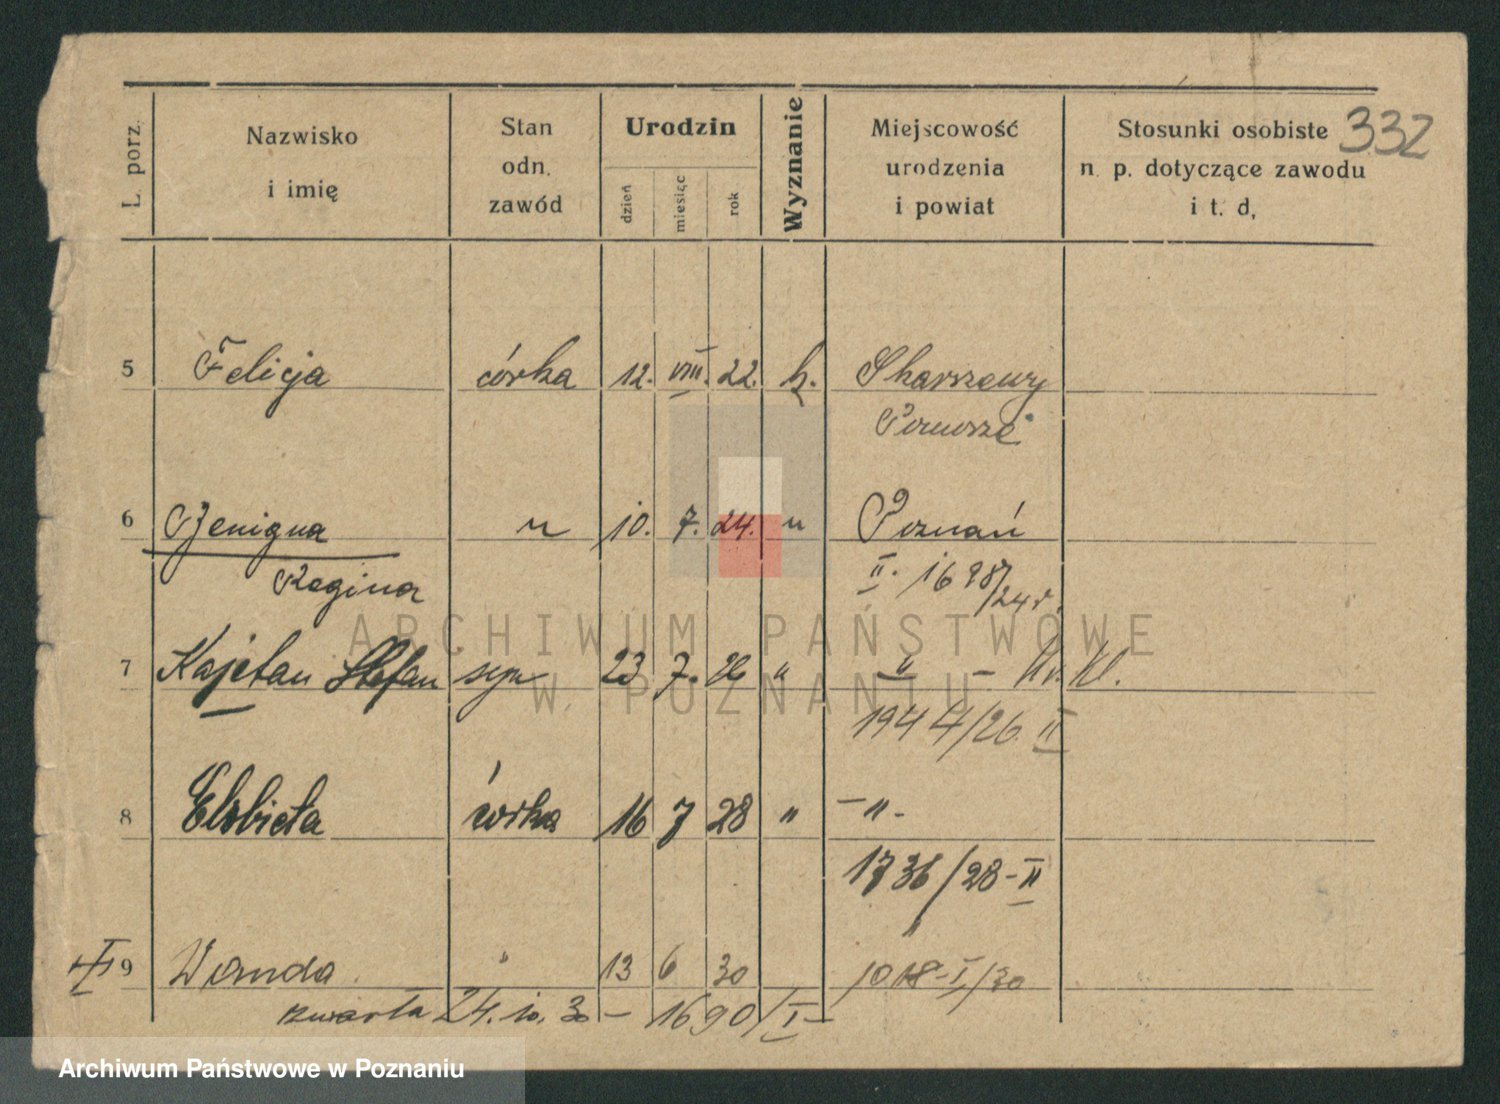 332
L. porz.
Nazwisko
i imię
Stan
odn.
zawód
Urodzin
dzień
miesiąc
rok
Wyznanie
Miejscowość
urodzenia
i powiat
Stosunki osobiste
n. p. dotyczące zawodu
i t. d,
5 Felicja córka 12. VIII. 22. k. Skarszewy
Pomorze
6 Benigna " 10. 7. 24. " Poznań
Regina II. 1698/24 r.
7 Kajetan Stefan syn 23 7. 26 " " -
1944/26. II
8 Elżbieta córka 16 7 28 " - " -
1736/28-II
"
9 Wanda " 13 6 30 1018-I/30
zmarła 24. 10. 30 - 1690/I -
ARCHIWUM PAŃSTWOWE
W POZNANIU
Archiwum Państwowe w Poznaniu